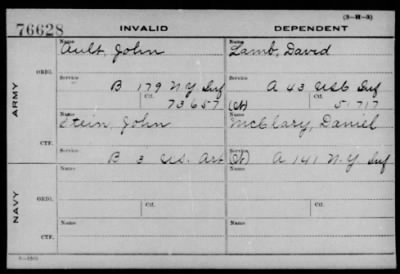 (3-H-3)
76628 INVALID DEPENDENT
Name Name
Ault, John Lamb, David
ARMY ORIG. Service Service
B 179 N.Y. Inf A 43 USC Inf
Ctf. 73657 (M) Ctf. 51717
Stein, John McClary, Daniel
CTF. Service Service
B 3 U.S. Art (M) A 141 N.Y. Inf
Name Name
NAVY ORIG.
Ctf. Ctf.
Name Name
CTF.